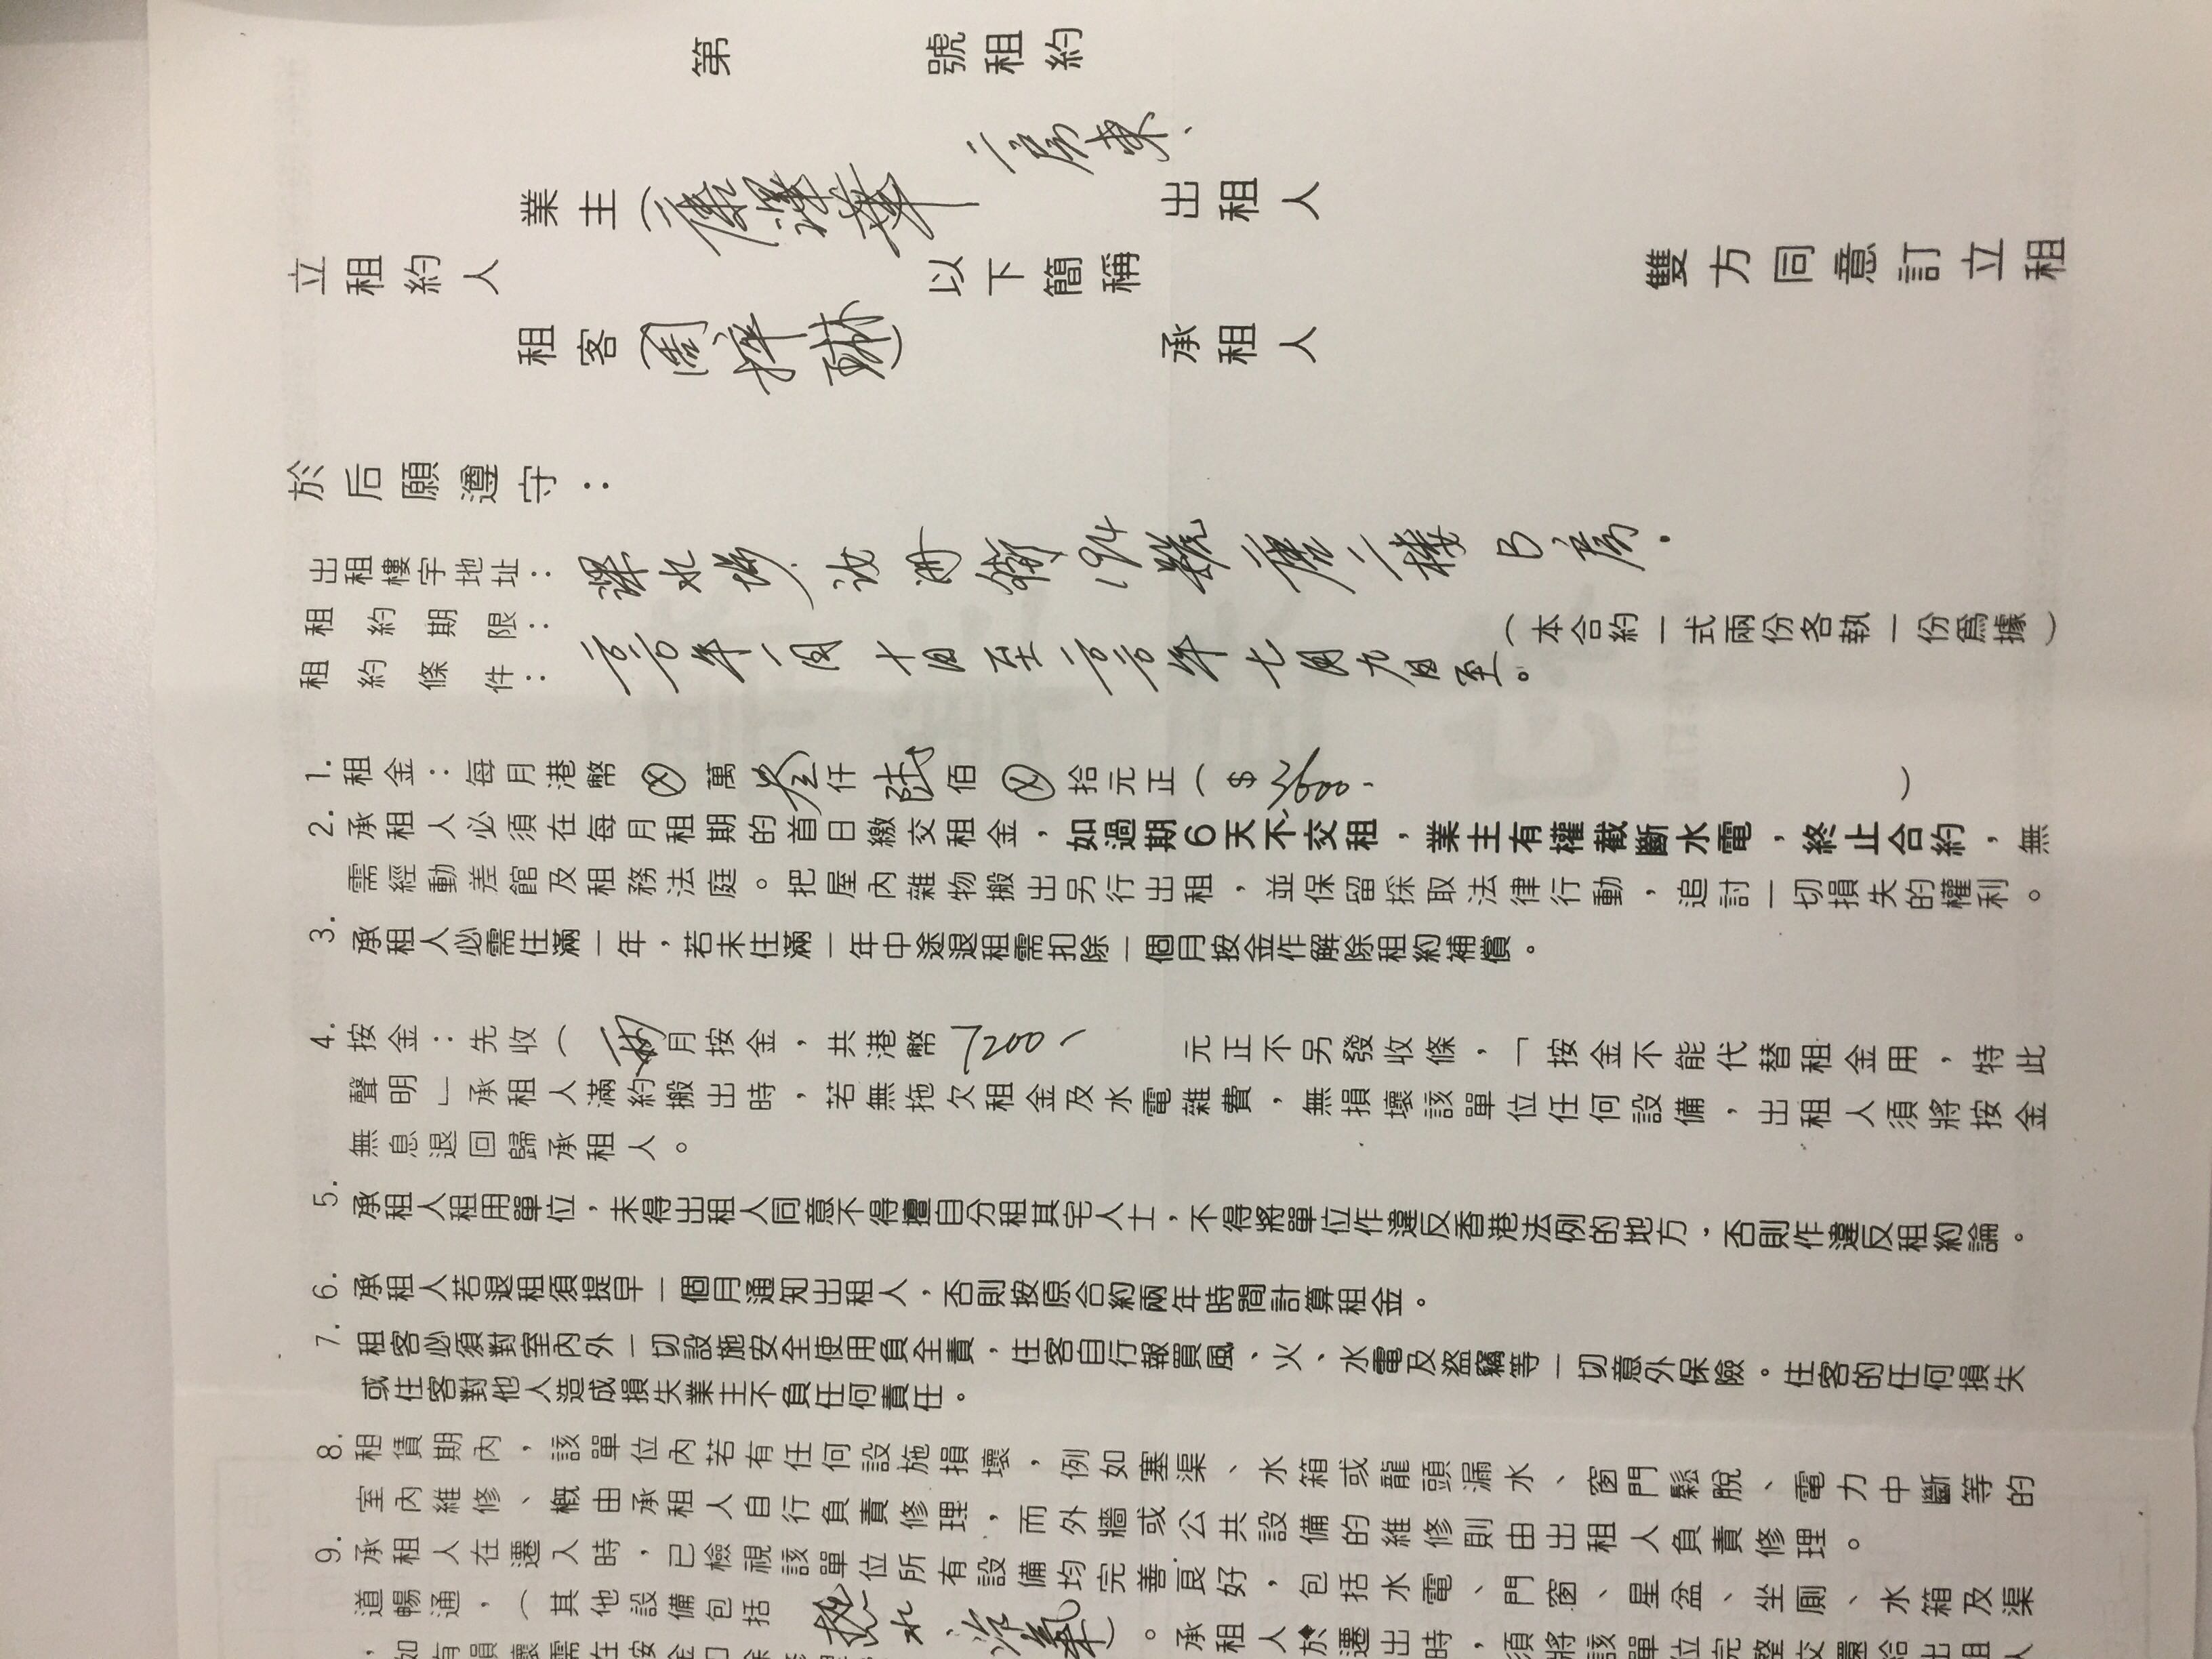 第 號租約
二房東
業主( 出租人
立租約人 以下簡稱 雙方同意訂立租
租客(周梓 ) 承租人
於后願遵守：
出租樓宇地址：深水埗 洲街194號 二樓B房.
租約期限：
二〇二〇年一月十日至二〇二〇年七月九日至。
租約條件： (本合約一式兩份各執一份爲據)
1. 租金：每月港幣 萬叁仟陸佰 拾元正($3600. )
2. 承租人必須在每月租期的首日繳交租金，如過期6天不交租，業主有權截斷水電，終止合約，無
需經動差館及租務法庭。把屋內雜物搬出另行出租，並保留採取法律行動，追討一切損失的權利。
3. 承租人必需住滿一年，若未住滿一年中途退租需扣除一個月按金作解除租約補償。
4. 按金：先收(兩月按金，共港幣7200 元正不另發收條，「按金不能代替租金用，特此
聲明」承租人滿約搬出時，若無拖欠租金及水電雜費，無損壞該單位任何設備，出租人須將按金
無息退回歸承租人。
5. 承租人租用單位，未得出租人同意不得擅自分租其宅人士，不得將單位作違反香港法例的地方，否則作違反租約論。
6. 承租人若退租須提早一個月通知出租人，否則按原合約兩年時間計算租金。
7. 租客必須對室內外一切設施安全使用負全責，住客自行報買風、火、水電及盜竊等一切意外保險。住客的任何損失
或住客對他人造成損失業主不負任何責任。
8. 租賃期內，該單位內若有任何設施損壞，例如塞渠、水箱或龍頭漏水、窗門鬆脫、電力中斷等的
室內維修、概由承租人自行負責修理，而外牆或公共設備的維修則由出租人負責修理。
9. 承租人在遷入時，已檢視該單位所有設備均完善良好，包括水電、門窗、星盆、坐厠、水箱及渠
道暢通，(其他設備包括 熱水 冷氣 。承租人於遷出時，須將該單位完整交還給出租人
，如有損壞需在按金扣除